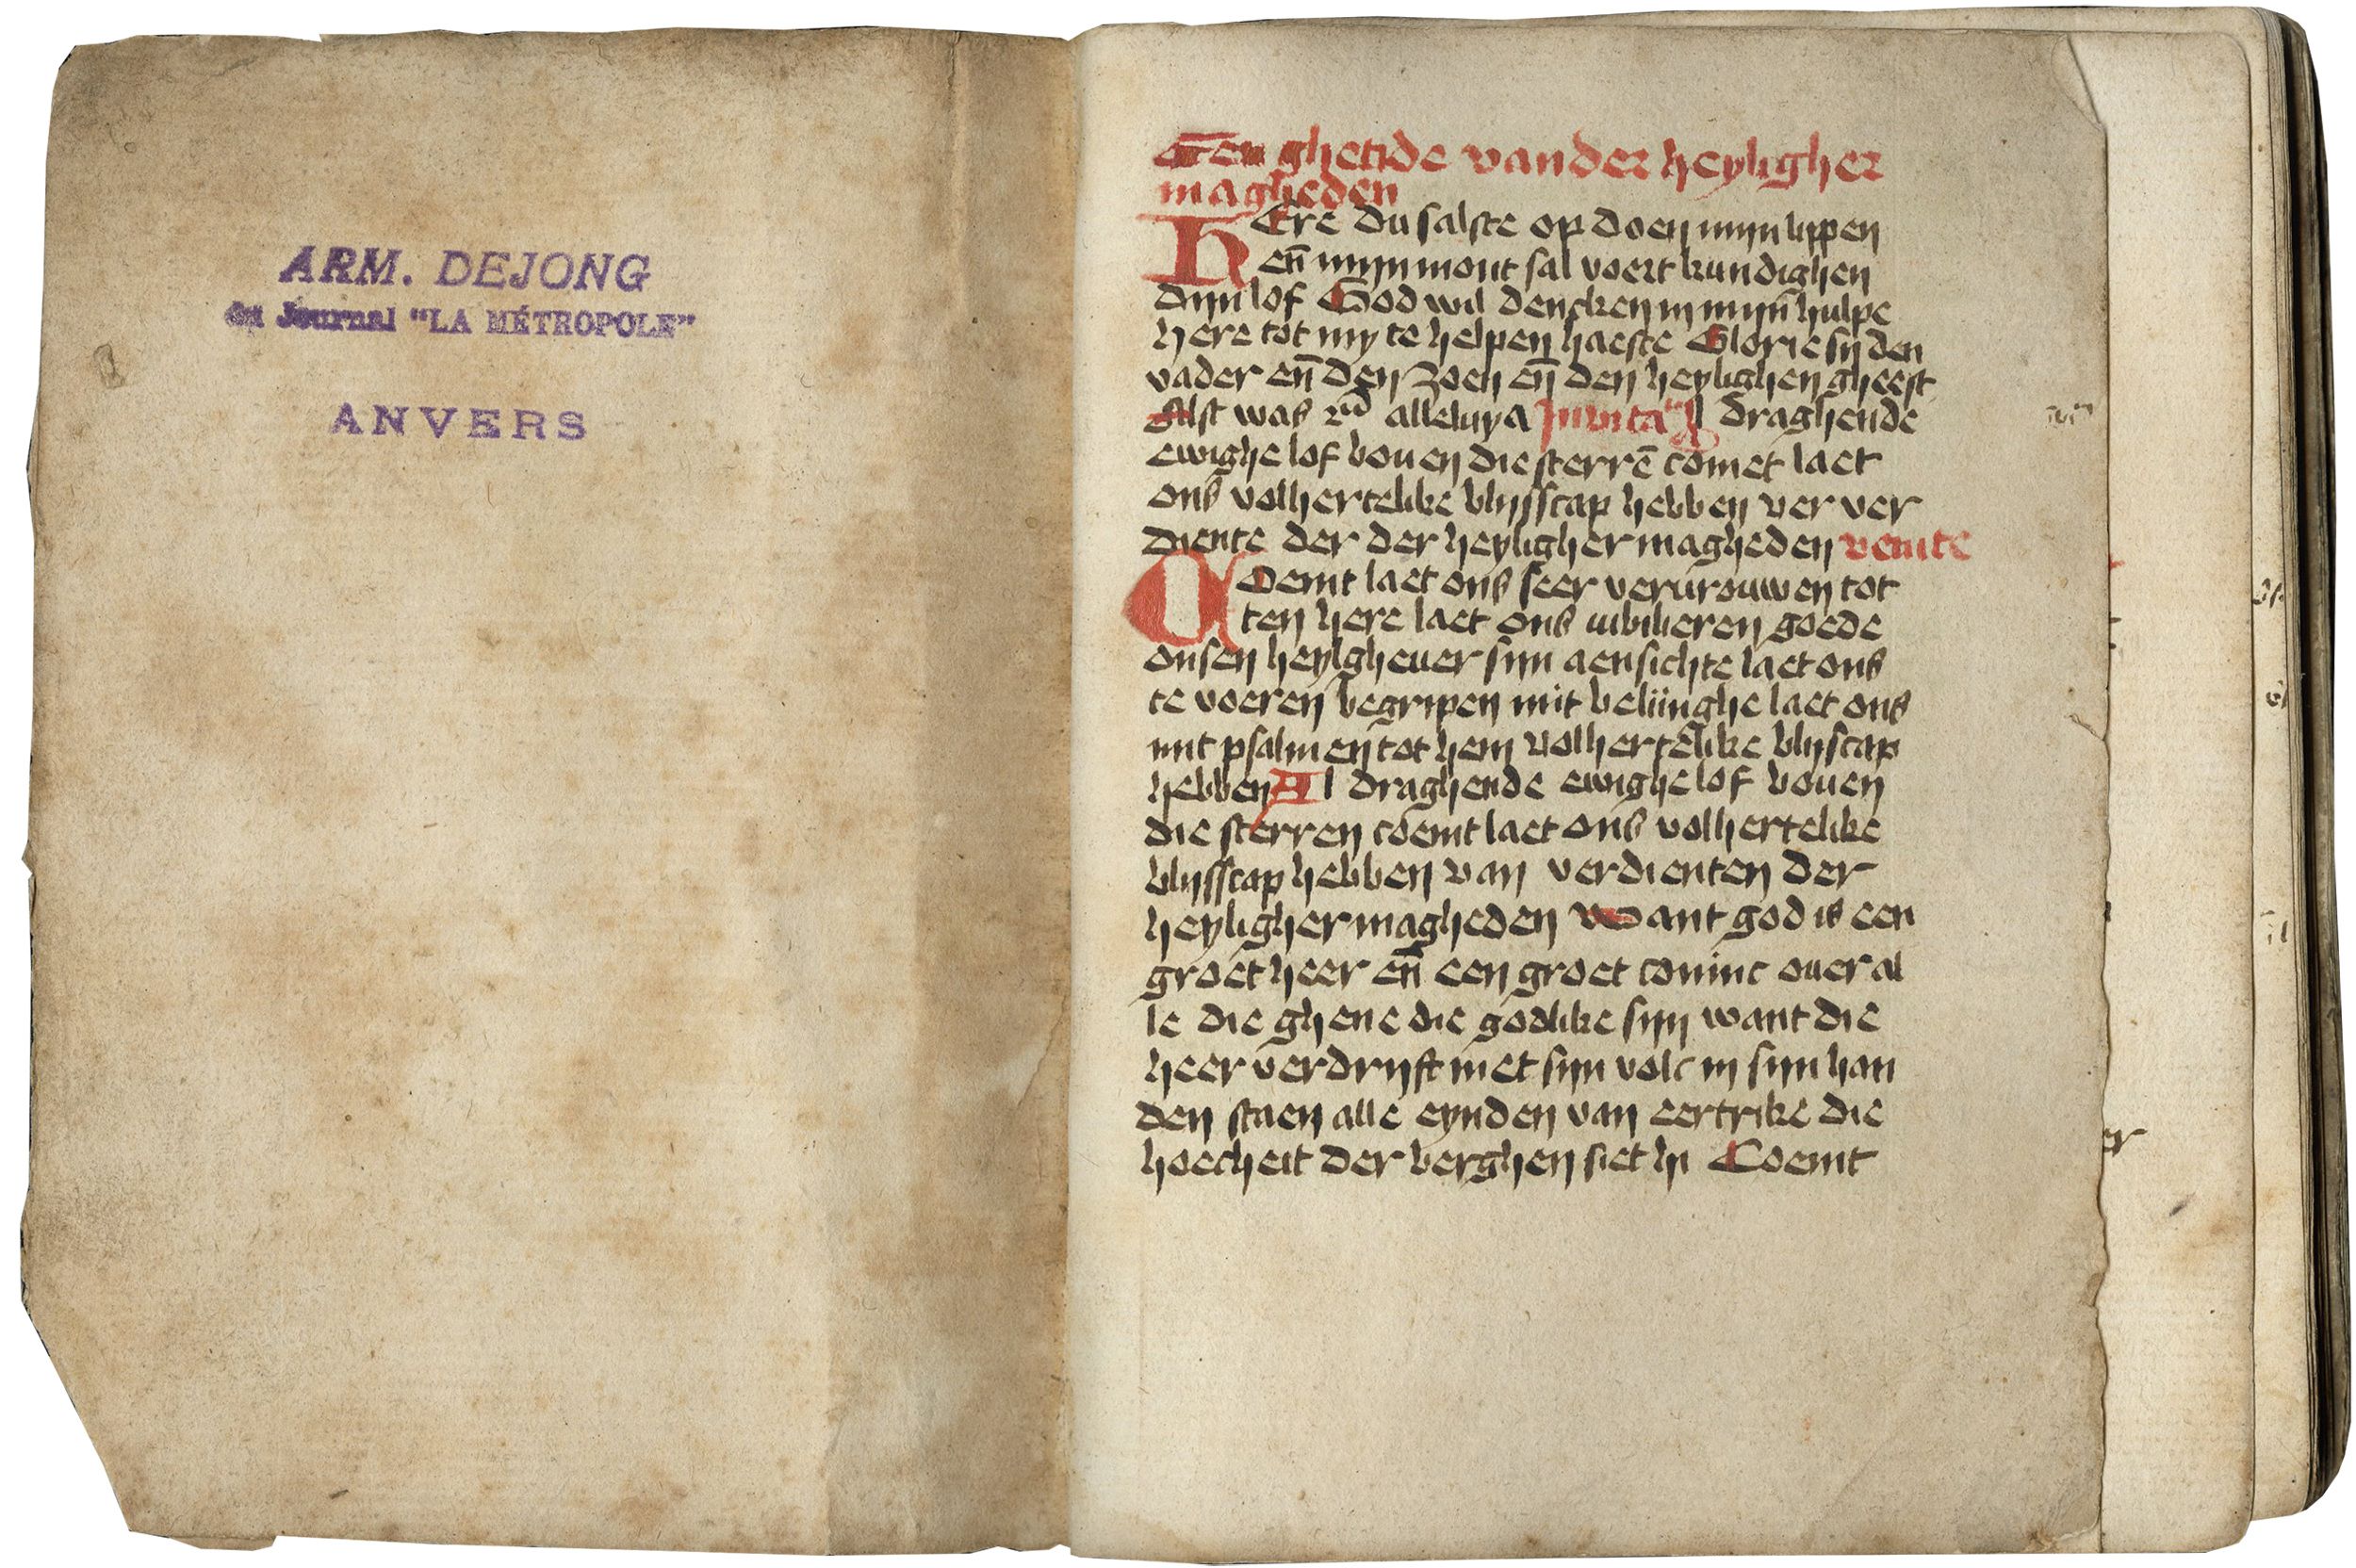 ARM. DEJONG
du Journal "LA MÉTROPOLE"
ANVERS
Een ghetide vander heyligher
magheden
HEre du salste op doen mijn lippen
en̄ mijn mont sal voert kundighen
dijn lof God wil dencken in mijn̄ hulpe
here tot my te helpen haeste Glorie sy den
vader en̄ den zoen en̄ den heylighen gheest
Alst was alleluya Inuita Al draghende
ewighe lof bouen die sterrē comet laet
ons volhertelike blijsscap hebben ver ver
diente der der heyligher magheden venite
COemt laet ons seer vervrouwen tot
ten here laet ons iubilieren goede
onsen heylgheuer sijn aensichte laet ons
te voeren begripen mit belijinghe laet ons
mit psalmen tot hem volhertelike blijscap
hebben Al draghende ewighe lof bouen
die sterren coemt laet ons volhertelike
blijsscap hebben van verdienten der
heyligher magheden Want god is een
groet heer en̄ een groet coninc ouer al
le die ghene die godlike sijn want die
heer verdrijft niet sijn volc in sijn han
den staen alle eynden van eertrike die
hoecheit der berghen siet hi Coemt